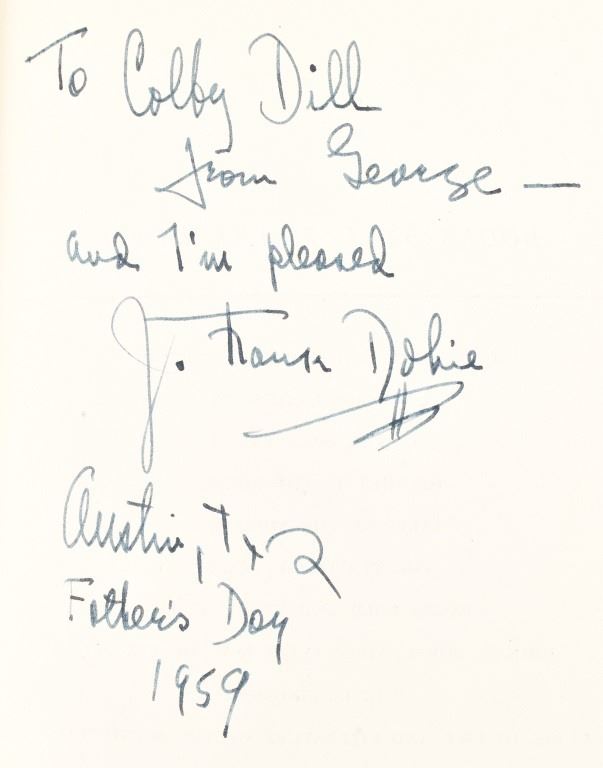 To Colby Dill
from George —
and I'm pleased
J. Frank Dobie
Austin, Tx
Father's Day
1959